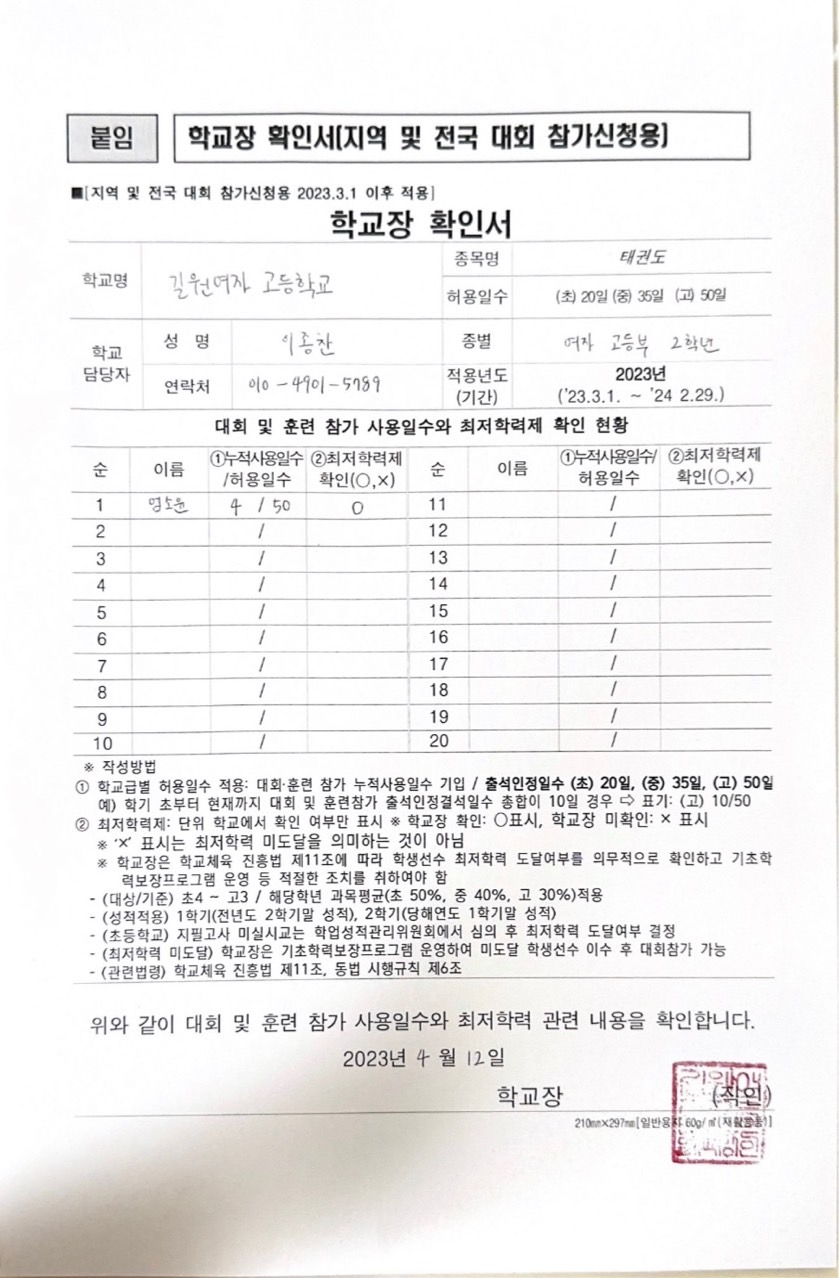 붙임
학교장 확인서(지역 및 전국 대회 참가신청용)
■[지역 및 전국 대회 참가신청용 2023.3.1 이후 적용]
학교장 확인서
학교명 길원여자 고등학교 종목명 태권도
허용일수 (초) 20일 (중) 35일 (고) 50일
학교 담당자 성 명 이종찬 종별 여자 고등부 2학년
연락처 010-4901-5789 적용년도 (기간) 2023년 ('23.3.1. ~ '24 2.29.)
대회 및 훈련 참가 사용일수와 최저학력제 확인 현황
순 이름 ①누적사용일수/허용일수 ②최저학력제 확인(○,×) 순 이름 ①누적사용일수/허용일수 ②최저학력제 확인(○,×)
1 엄소윤 4 / 50 O 11 /
2 / 12 /
3 / 13 /
4 / 14 /
5 / 15 /
6 / 16 /
7 / 17 /
8 / 18 /
9 / 19 /
10 / 20 /
※ 작성방법
① 학교급별 허용일수 적용: 대회·훈련 참가 누적사용일수 기입 / 출석인정일수 (초) 20일, (중) 35일, (고) 50일
예) 학기 초부터 현재까지 대회 및 훈련참가 출석인정결석일수 총합이 10일 경우 ⇨ 표기: (고) 10/50
② 최저학력제: 단위 학교에서 확인 여부만 표시 ※ 학교장 확인: ○표시, 학교장 미확인: × 표시
※ '×' 표시는 최저학력 미도달을 의미하는 것이 아님
※ 학교장은 학교체육 진흥법 제11조에 따라 학생선수 최저학력 도달여부를 의무적으로 확인하고 기초학
력보장프로그램 운영 등 적절한 조치를 취하여야 함
- (대상/기준) 초4 ~ 고3 / 해당학년 과목평균(초 50%, 중 40%, 고 30%)적용
- (성적적용) 1학기(전년도 2학기말 성적), 2학기(당해연도 1학기말 성적)
- (초등학교) 지필고사 미실시교는 학업성적관리위원회에서 심의 후 최저학력 도달여부 결정
- (최저학력 미도달) 학교장은 기초학력보장프로그램 운영하여 미도달 학생선수 이수 후 대회참가 가능
- (관련법령) 학교체육 진흥법 제11조, 동법 시행규칙 제6조
위와 같이 대회 및 훈련 참가 사용일수와 최저학력 관련 내용을 확인합니다.
2023년 4 월 12일
학교장 (직인)
210㎜×297㎜[일반용지 60g/㎡(재활용품)]